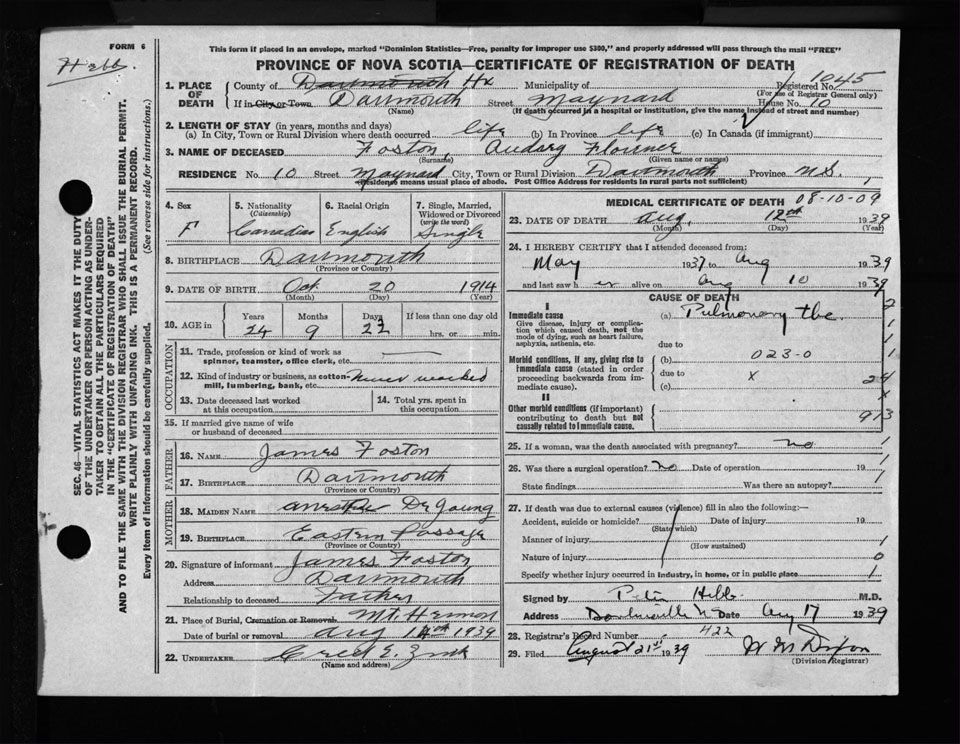 FORM 6
Hebb.
This form if placed in an envelope, marked "Dominion Statistics—Free, penalty for improper use $300," and properly addressed will pass through the mail "FREE"
PROVINCE OF NOVA SCOTIA—CERTIFICATE OF REGISTRATION OF DEATH
1. PLACE OF DEATH County of Dartmouth Hx Municipality of Registered No. 1045
(For use of Registrar General only)
If in City or Town Dartmouth Street Maynard House No. 10
(Name) (If death occurred in a hospital or institution, give the name instead of street and number)
2. LENGTH OF STAY (in years, months and days)
(a) In City, Town or Rural Division where death occurred life (b) In Province life (c) In Canada (if immigrant)
3. NAME OF DECEASED Foston, Audrey
(Surname) (Given name or names)
RESIDENCE No. 10 Street Maynard City, Town or Rural Division Dartmouth Province N.S.
(Residence means usual place of abode. Post Office Address for residents in rural parts not sufficient)
4. Sex F
5. Nationality (Citizenship) Canadian
6. Racial Origin English
7. Single, Married, Widowed or Divorced (write the word) Single
8. BIRTHPLACE Dartmouth
(Province or Country)
9. DATE OF BIRTH Oct. 20 1914
(Month) (Day) (Year)
10. AGE in Years Months Days If less than one day old
24 9 22 hrs. or min.
OCCUPATION
11. Trade, profession or kind of work as spinner, teamster, office clerk, etc.
12. Kind of industry or business, as cotton mill, lumbering, bank, etc. Never worked
13. Date deceased last worked at this occupation
14. Total yrs. spent in this occupation
15. If married give name of wife or husband of deceased
FATHER
16. NAME James Foston
17. BIRTHPLACE Dartmouth
(Province or Country)
MOTHER
18. MAIDEN NAME De Young
19. BIRTHPLACE Eastern Passage
(Province or Country)
20. Signature of informant James Foston
Address Dartmouth
Relationship to deceased Father
21. Place of Burial, Cremation or Removal Mt. Hermon
Date of burial or removal Aug 14th 1939
22. UNDERTAKER Creed E. Zink
(Name and address)
MEDICAL CERTIFICATE OF DEATH 08-10-09
23. DATE OF DEATH Aug. 12th 1939
(Month) (Day) (Year)
24. I HEREBY CERTIFY that I attended deceased from:
May 1937 to Aug 1939
and last saw h er alive on Aug 10 1939
CAUSE OF DEATH
I
Immediate cause (a) Pulmonary tbc.
Give disease, injury or complication which caused death, not the mode of dying, such as heart failure, asphyxia, asthenia, etc.
due to
Morbid conditions, if any, giving rise to immediate cause (stated in order proceeding backwards from immediate cause).
(b) 023-0
due to x
(c) 24
II
Other morbid conditions (if important) contributing to death but not causally related to immediate cause.
913
25. If a woman, was the death associated with pregnancy? no 1
26. Was there a surgical operation? no Date of operation 19 1
State findings Was there an autopsy? 1
27. If death was due to external causes (violence) fill in also the following:—
Accident, suicide or homicide? Date of injury 19
(State which)
Manner of injury 1
(How sustained)
Nature of injury 0
Specify whether injury occurred in industry, in home, or in public place 1
Signed by Hebb M.D.
Address Date Aug 17 1939
28. Registrar's Record Number 422
29. Filed August 21st 1939 W M Dixon
(Division Registrar)
SEC. 46—VITAL STATISTICS ACT MAKES IT THE DUTY
OF THE UNDERTAKER OR PERSON ACTING AS UNDER-
TAKER TO OBTAIN ALL THE PARTICULARS REQUIRED
IN THE "CERTIFICATE OF REGISTRATION OF DEATH"
AND TO FILE THE SAME WITH THE DIVISION REGISTRAR WHO SHALL ISSUE THE BURIAL PERMIT.
WRITE PLAINLY WITH UNFADING INK. THIS IS A PERMANENT RECORD.
Every item of information should be carefully supplied. (See reverse side for instructions.)